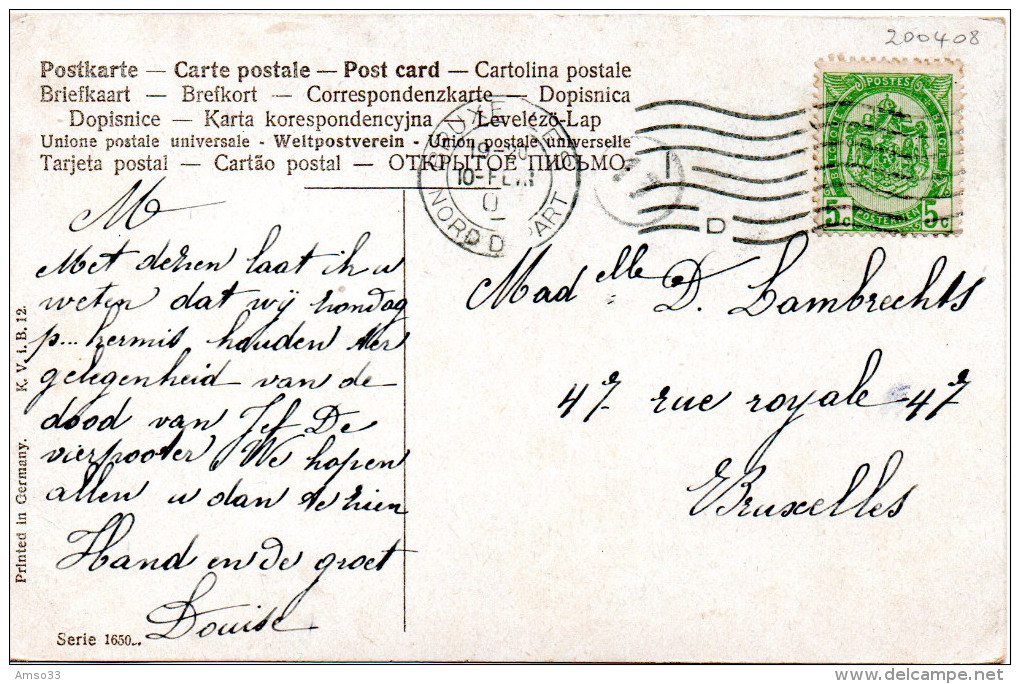 200408
Postkarte — Carte postale — Post card — Cartolina postale
Briefkaart — Brefkort — Correspondenzkarte — Dopisnica
Dopisnice — Karta korespondencyjna — Levelezö-Lap
Unione postale universale - Weltpostverein - Union postale universelle
Tarjeta postal — Cartão postal — ОТКРЫТОЕ ПИСЬМО.
10-FEVR
NORD DEPART
D
POSTES
BELGIQUE
BELGIE
POSTERIJEN
5c 5c
M
Met dezen laat ik u
weten dat wij zondag
p... kermis houden ter
gelegenheid van de
dood van Jef De
vierpooter We hopen
allen u dan te zien
Hand en de groet
Louise
Madelle D. Lambrechts
47 rue royale 47
Bruxelles
Printed in Germany. K. V. i. B. 12.
Serie 1650
Amso33
www.delcampe.net